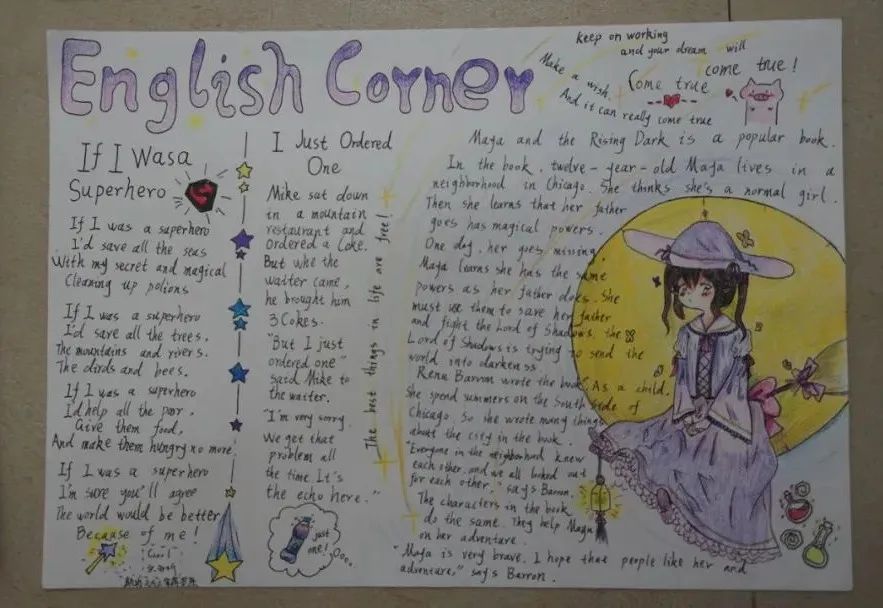 English Corner
keep on working
and your dream will
come true!
Make a wish.
And it can really come true
Come true
If I Wasa
Superhero
S
If I was a superhero
I'd save all the seas
With my secret and magical
Cleaning up potions
If I was a superhero
I'd save all the trees.
The mountains and rivers.
The dirds and bees.
If I was a superhero
I'd help all the poor.
Give them food,
And make them hungry no more
If I was a superhero
I'm sure you'll agree
The world would be better
Because of me!
I Just Ordered
One
Mike sat down
in a mountain
restaurant and
ordered a Coke.
But whe the
waiter came,
he brought him
3 Cokes.
"But I just
ordered one"
said Mike to
the waiter.
"I'm very sorry
We get that
problem all
the time It's
the echo here."
just
one!
The best things in life are free!
Maya and the Rising Dark is a popular book.
In the book, twelve-year-old Maya lives in a
neighborhood in Chicago. She thinks she's a normal girl.
Then she learns that her father
goes has magical powers.
One day, her goes missing,
Maya learns she has the same
powers as her father does. She
must use them to save her father
and fight the Lord of Shadows, the
Lord of Shadows is trying to send the
world into darkness
Rena Barron wrote the book. As a child,
She spend summers on the South Side of
Chicago. So she wrote many things
about the city in the book.
"Everyone in the neighborhood knew
each other, and we all looked out
for each other," says Barron.
The characters in the book
do the same. They help Maya
on her adventure.
"Maya is very brave. I hope that people like her and
adventure," says Barron.